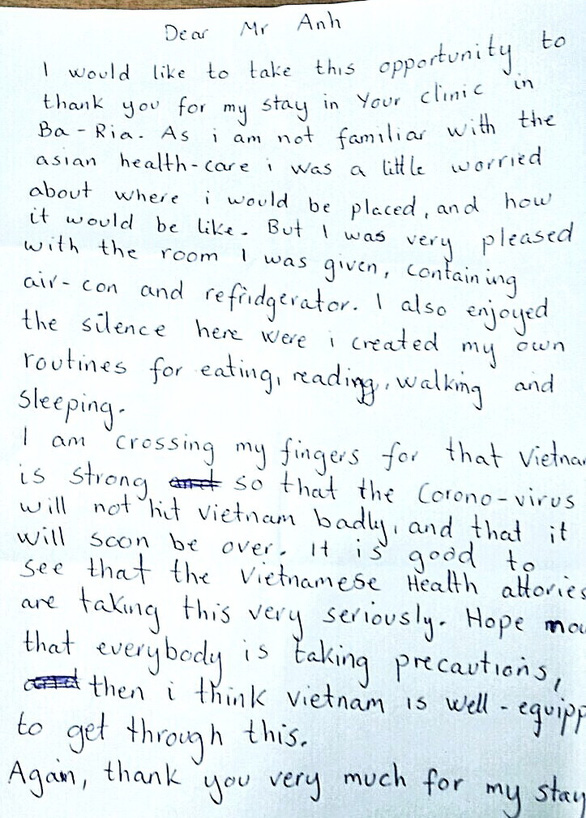 Dear Mr Anh
I would like to take this opportunity to
thank you for my stay in Your clinic in
Ba-Ria. As i am not familiar with the
asian health-care i was a little worried
about where i would be placed, and how
it would be like. But I was very pleased
with the room I was given, containing
air-con and refridgerator. I also enjoyed
the silence here were i created my own
routines for eating, reading, walking and
sleeping.
I am crossing my fingers for that Vietna
is strong so that the Corono-virus
will not hit Vietnam badly, and that it
will soon be over. It is good to
see that the Vietnamese Health attories
are taking this very seriously. Hope
that everybody is taking precautions,
then i think Vietnam is well-equipp
to get through this.
Again, thank you very much for my stay